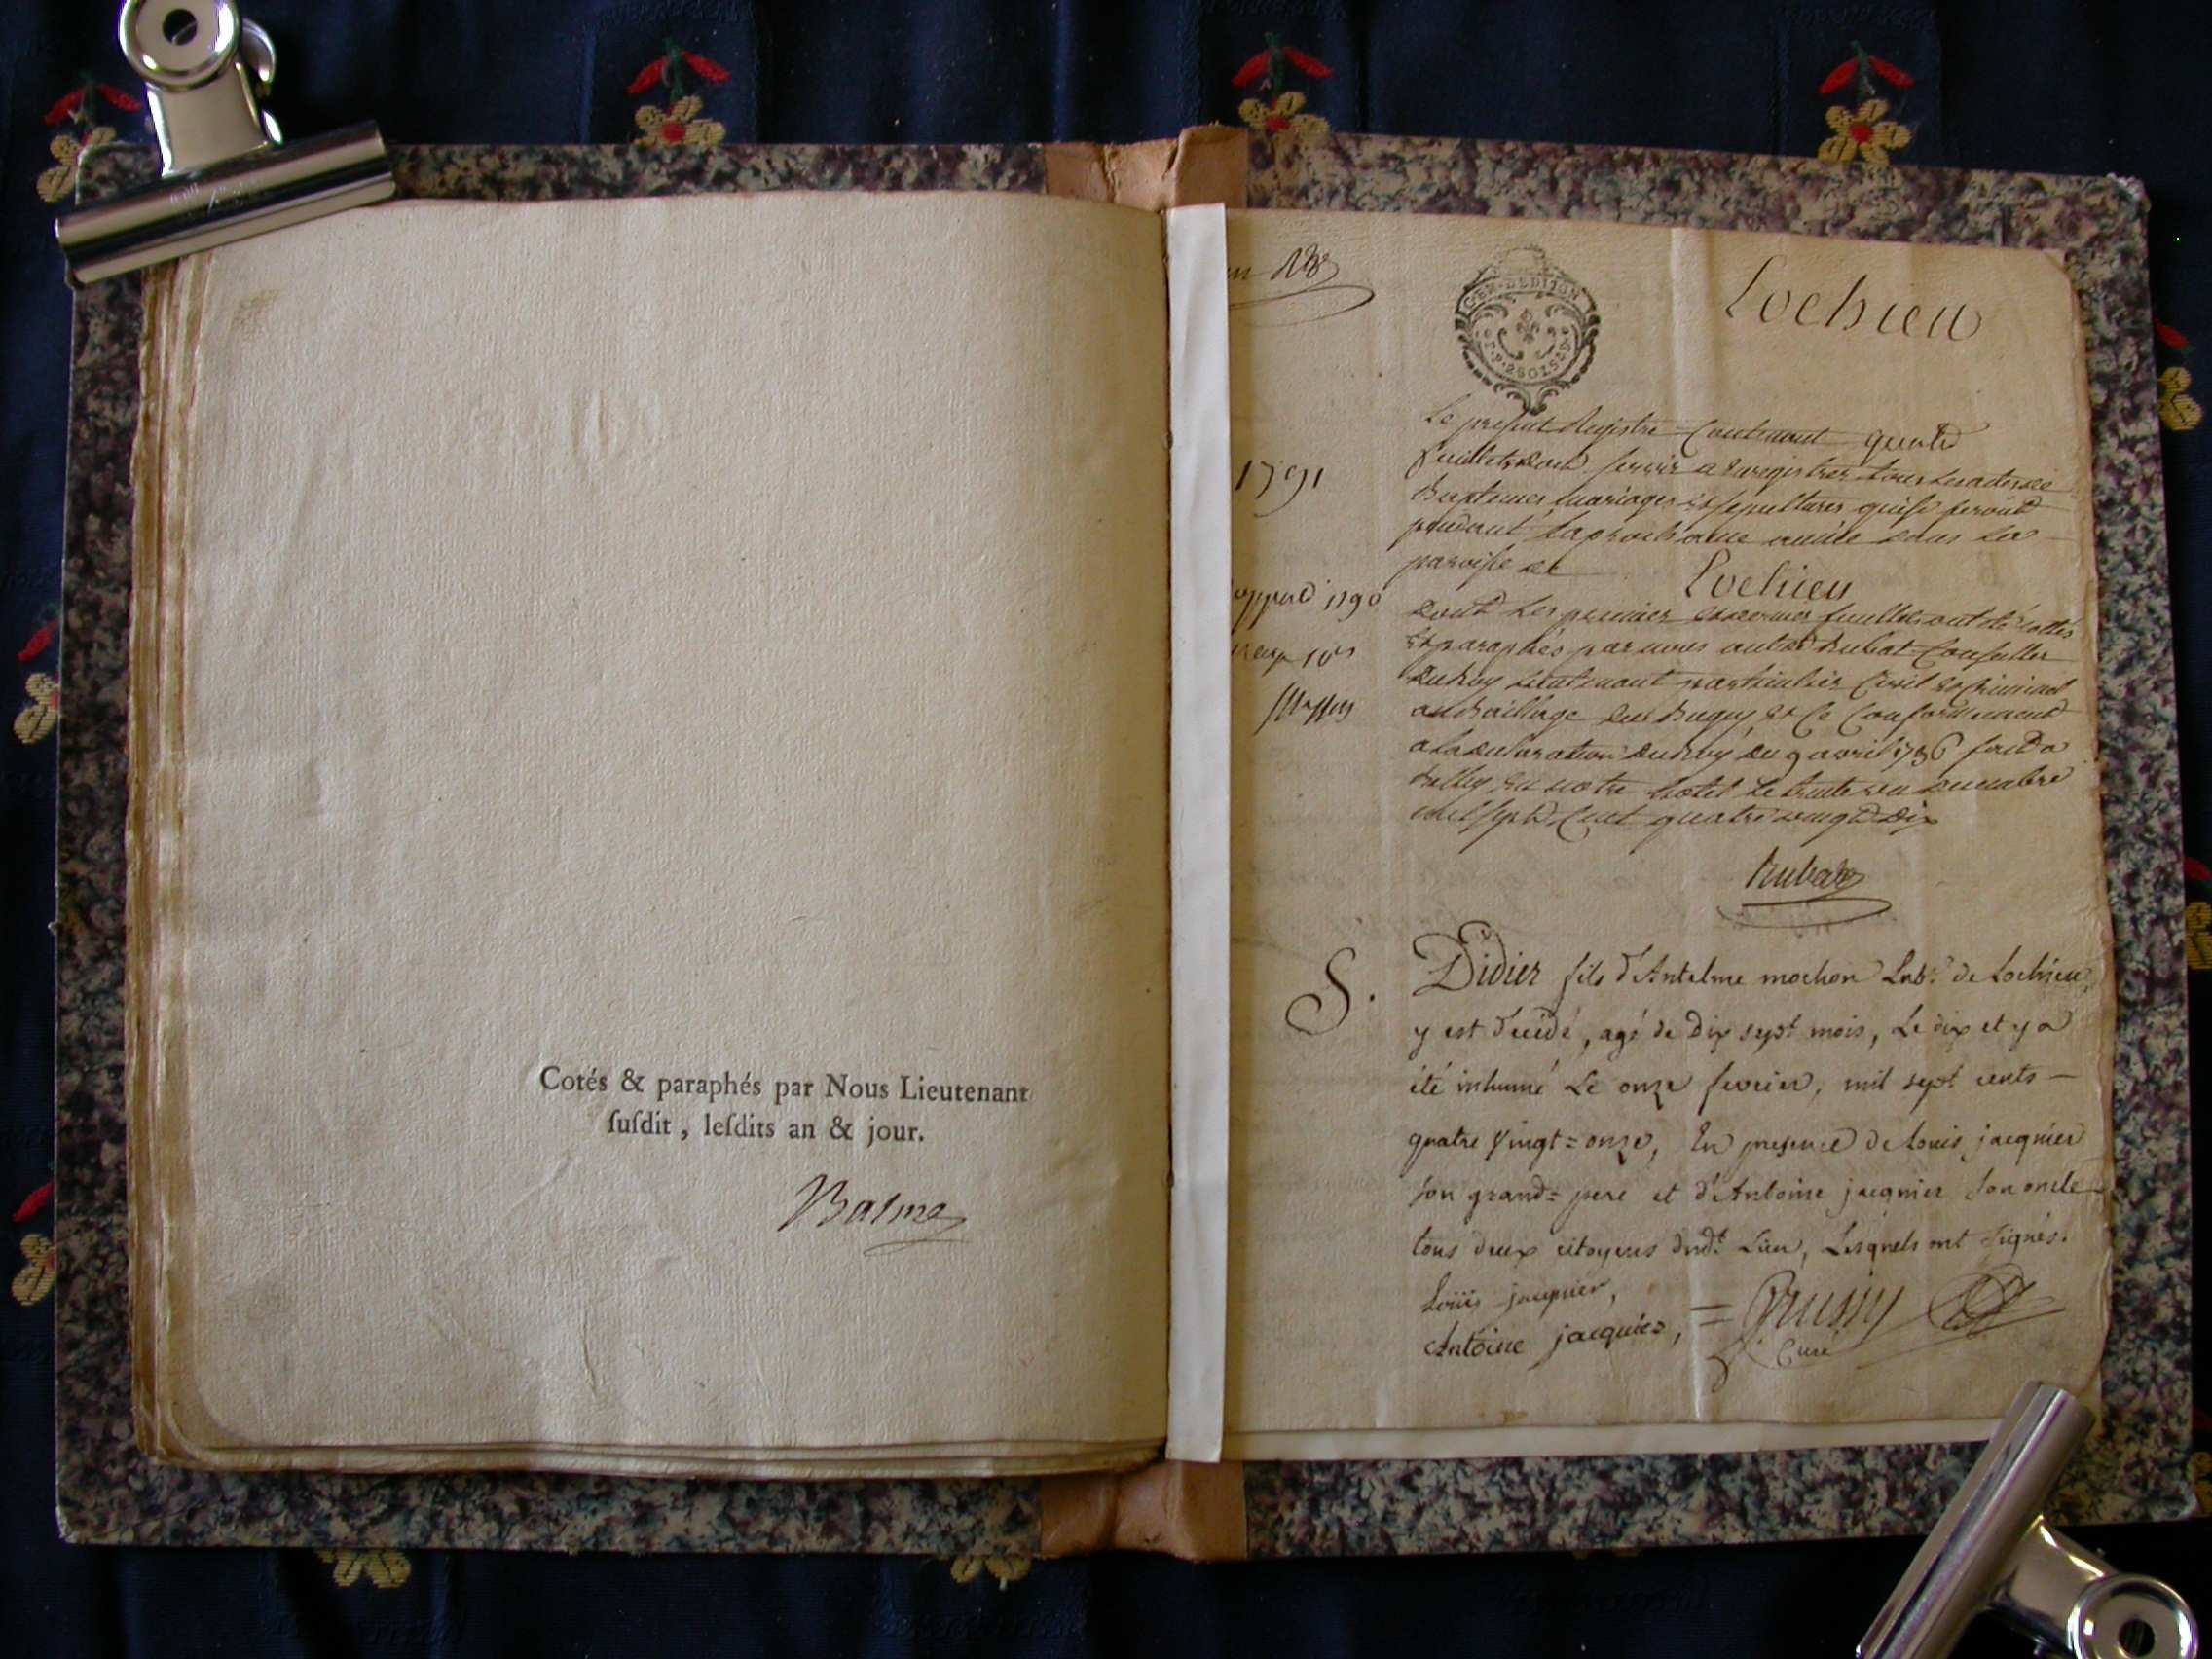 Cotés & paraphés par Nous Lieutenant
ſuſdit, leſdits an & jour.
Balme
Lochieu
GEN. DE DIJON
2 SOLS
1791
1790
Le présent Registre Contenant quatre
feuillets doit servir a Enregistrer tous les actes de
Baptemes, mariages et sepultures qui se feront
pendant la prochaine année dans la
paroisse de Lochieu
dont les premier et dernier feuillets ont été cottés
Et paraphés par nous Rubat Conseiller
du Roy Lieutenant particulier Civil et Criminel
au Bailliage du Bugey et Ce Conformement
a la declaration du Roy du 9 avril 1736 fait a
Belley en notre hotel le trente un decembre
mil sept Cent quatre vingt dix
Rubat
S. Didier fils d'Antelme mochon Lab.r de Lochieu
y est décédé, agé de Dix sept mois, Le dix et y a
été inhumé Le onze fevrier, mil sept cents —
quatre vingt = onze, En presence de Louis jacquier
son grand = pere et d'Antoine jacquier son oncle
tous deux citoyens dud.t Lieu, Lesquels ont signés.
Loüis jacquier,
Antoine jacquier,
Curé